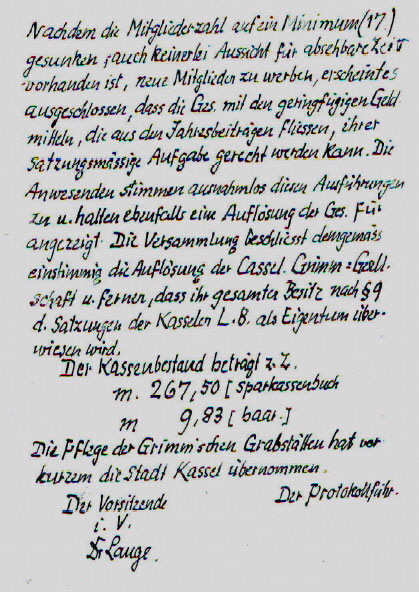 Nachdem die Mitgliederzahl auf ein Minimum (17.)
gesunken, auch keinerlei Aussicht für absehbare Zeit
vorhanden ist, neue Mitglieder zu werben, erscheint es
ausgeschlossen, dass die Ges. mit den geringfügigen Geld-
mitteln, die aus den Jahresbeiträgen fliessen, ihrer
satzungsmässige Aufgabe gerecht werden kann. Die
Anwesenden stimmen ausnahmlos diesen Ausführungen
zu u. halten ebenfalls eine Auflösung der Ges. für
angezeigt. Die Versammlung beschliesst demgemäss
einstimmig die Auflösung der Cassel. Grimm=Gesell.
schaft u. ferner, dass ihr gesamter Besitz nach § 9
d. Satzungen der Kasseler L.B. als Eigentum über-
wiesen wird.
Der Kassenbestand beträgt z. Z.
m. 267,50 [Sparkassenbuch
m 9,83 [baar.]
Die Pflege der Grimm'schen Grabstätten hat vor
kurzem die Stadt Kassel übernommen.
Der Vorsitzende Der Protokollführ.
i. V.
Dr Lange.